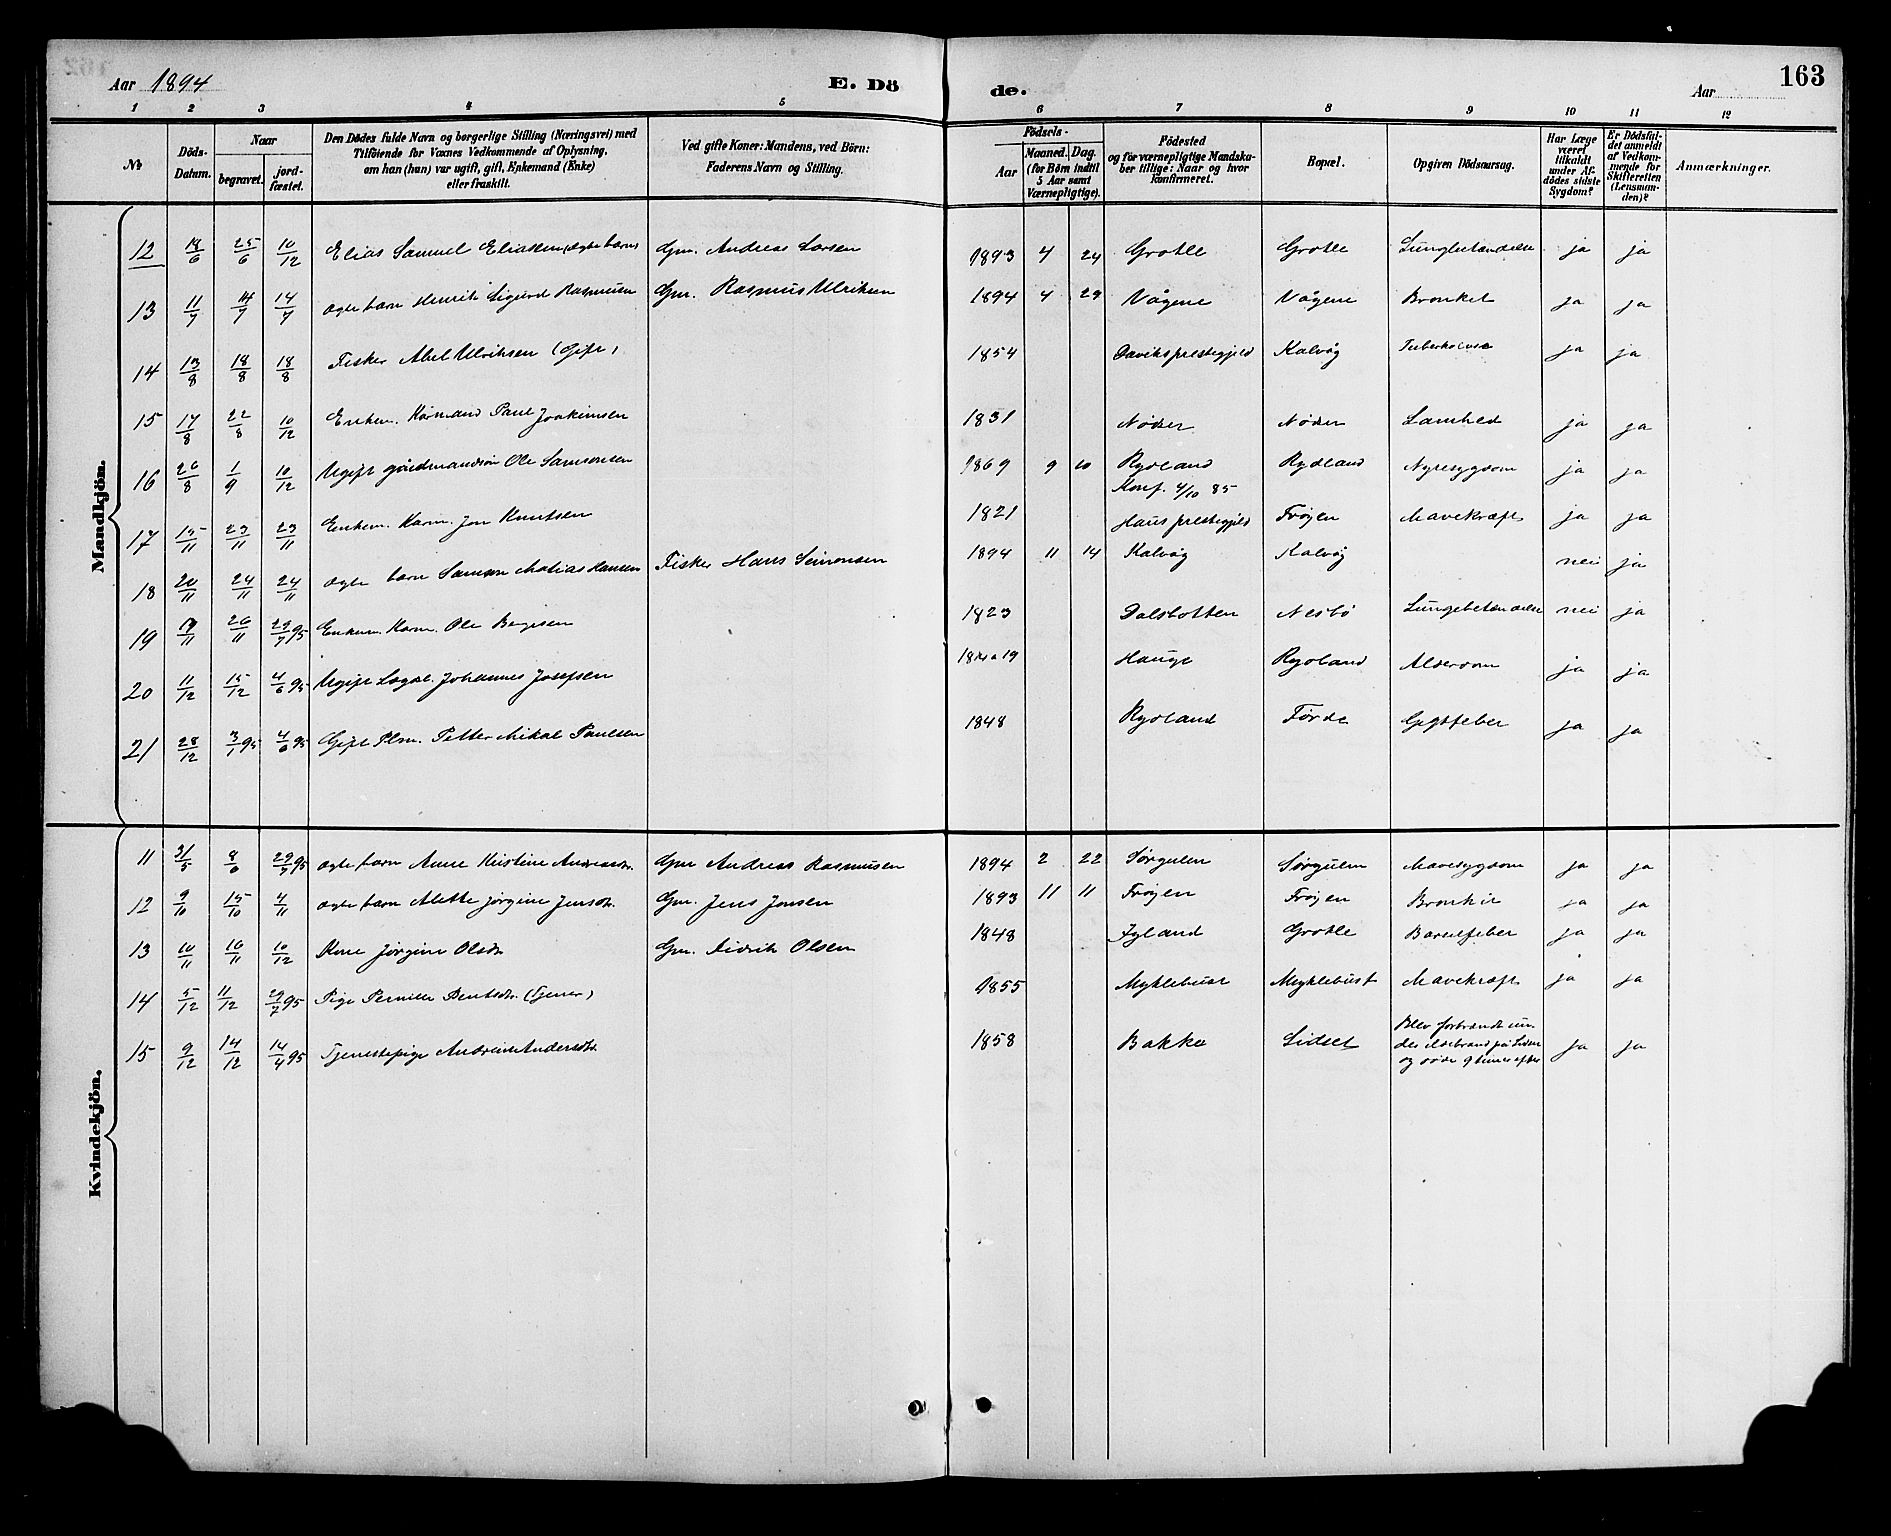 Aar 1894
E. Dö
de.
Aar
163
1 2 3 4 5 6 7 8 9 10 11 12
№
Döds-
Datum.
Naar
begravet.
jord-
fæstet.
Den Dödes fulde Navn og borgerlige Stilling (Næringsvei) med
Tilföiende for Voxnes Vedkommende af Oplysning,
om han (hun) var ugift, gift, Enkemand (Enke)
eller fraskilt.
Ved gifte Koner: Mandens, ved Börn:
Faderens Navn og Stilling.
Födsels-
Aar
Maaned. Dag.
(for Börn indtil
5 Aar samt
Værnepligtige).
Födested
og for værnepligtige Mandska-
ber tillige: Naar og hvor
konfirmeret.
Bopæl.
Opgiven Dödsaarsag.
Har Læge
været
tilkaldt
under Af-
dödes sidste
Sygdom?
Er Dödsfal-
det anmeldt
af Vedkom-
mende for
Skifteretten
(Lensman-
den)?
Anmærkninger.
Mandkjön.
12 18/6 25/6 10/12 Elias Samuel Eliassen, ægte barn Gm. Andreas Larsen 1893 4 24 Grotle Grotle Lungbetændelse ja ja
13 11/7 14/7 14/7 ægte barn Henrik Sigurd Rasmusen Gm. Rasmus Ulriksen 1894 4 29 Vågene Vågene Bronket ja ja
14 13/8 18/8 18/8 Fisker Abel Ulriksen (Gift) 1854 Daviksprestegjeld Kalvåg Tuberkulose ja ja
15 17/8 22/8 10/12 Enkem. Kårmand Paul Joakimsen 1831 Nødser Nødser Lamhed ja ja
16 26/8 1/9 10/12 Ugift gårdmandsøn Ole Samsonsen 1869 9 10 Rydland Rydland Nyresygdom ja ja
Konf. 4/10 85
17 15/11 23/11 23/11 Enkem. Karm. Jon Knutsen 1821 Haus prestegjeld Frøjen Mavekræft ja ja
18 20/11 24/11 24/11 ægte barn Samson Matias Hansen Fisker Hans Simonsen 1894 11 14 Kalvåg Kalvåg nei ja
19 19/11 26/11 29/7 95 Enkem. Karm. Ole 1823 Dalsbotten Nesbø Lungebetændelse nei ja
20 11/12 15/12 4/6 95 Ugift Lægdl. Johannes Josefsen Hauge Rydland Alderdom ja ja
21 28/12 3/1 95 4/6 95 Gift Plm. Petter Mikal Paulsen 1848 Rydland Førde Gigtfeber ja ja
Kvindekjön.
11 31/5 8/6 29/7 95 ægte barn Anne Kristine Andreasdtr. Gm Andreas Rasmusen 1894 2 22 Sørgulen Sørgulen Mavesygdom ja ja
12 9/10 15/10 4/11 ægte barn Alette Jørgine Jensdtr. Gm. Jens Jonsen 1893 11 11 Frøjen Frøjen Bronkit ja ja
13 10/11 16/11 10/12 Kone Jørgine Olsdtr Gm. Didrik Olsen 1848 Iyland Grotle Barselfeber ja ja
14 5/12 11/12 29/7 95 Pige Pernille Bentsdtr. (Tjener) 1855 Myklebust Myklebust Mavekræft ja ja
15 9/12 14/12 14/4 95 Tjenestepige Andrine Andersdtr. 1858 Bakke Lidset Blev forbrændt un-
der ildebrand på Lidset ja ja
og døde 9 timer efter